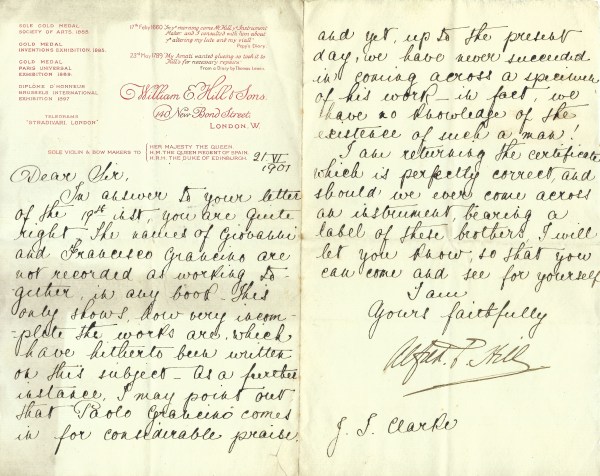 SOLE GOLD MEDAL
SOCIETY OF ARTS, 1885.
GOLD MEDAL
INVENTIONS EXHIBITION, 1885.
GOLD MEDAL
PARIS UNIVERSAL
EXHIBITION 1889.
DIPLOME D'HONNEUR
BRUSSELS INTERNATIONAL
EXHIBITION 1897.
TELEGRAMS
"STRADIVARI, LONDON"
17th Feby 1660
and I consulted with him about
altering my lute and my viall"
Pepy's Diary.
23rd May 1789 "My Amati wanted glueing so took it to
Hill's for necessary repairs"
From a Diary by
William E. Hill & Sons.
140 New Bond Street.
LONDON. W.
SOLE VIOLIN & BOW MAKERS TO
HER MAJESTY THE QUEEN.
H.M. THE QUEEN REGENT OF SPAIN.
H.R.H. THE DUKE OF EDINBURGH.
21 VI
1901
Dear Sir,
In answer to your letter
of the 19th inst, you are quite
right The names of Giovanni
and Francesco Grancino are
not recorded as working to-
gether, in any book - This
only shows, how very incom-
-plete the works are, which
have hitherto been written
on this subject - As a further
instance, I may point out
that Paolo Grancino comes
in for considerable praise.
and yet, up to the present
day, we have never succeeded
in coming across a specimen
of his work - in fact, we
have no knowledge of the
existence of such a man!
I am returning the certificate
which is perfectly correct, and
should we ever come across
an instrument, bearing a
label of these brothers, I will
let you know, so that you
can come and see for yourself
I am
Yours faithfully
Alfred E. Hill
J. S. Clarke